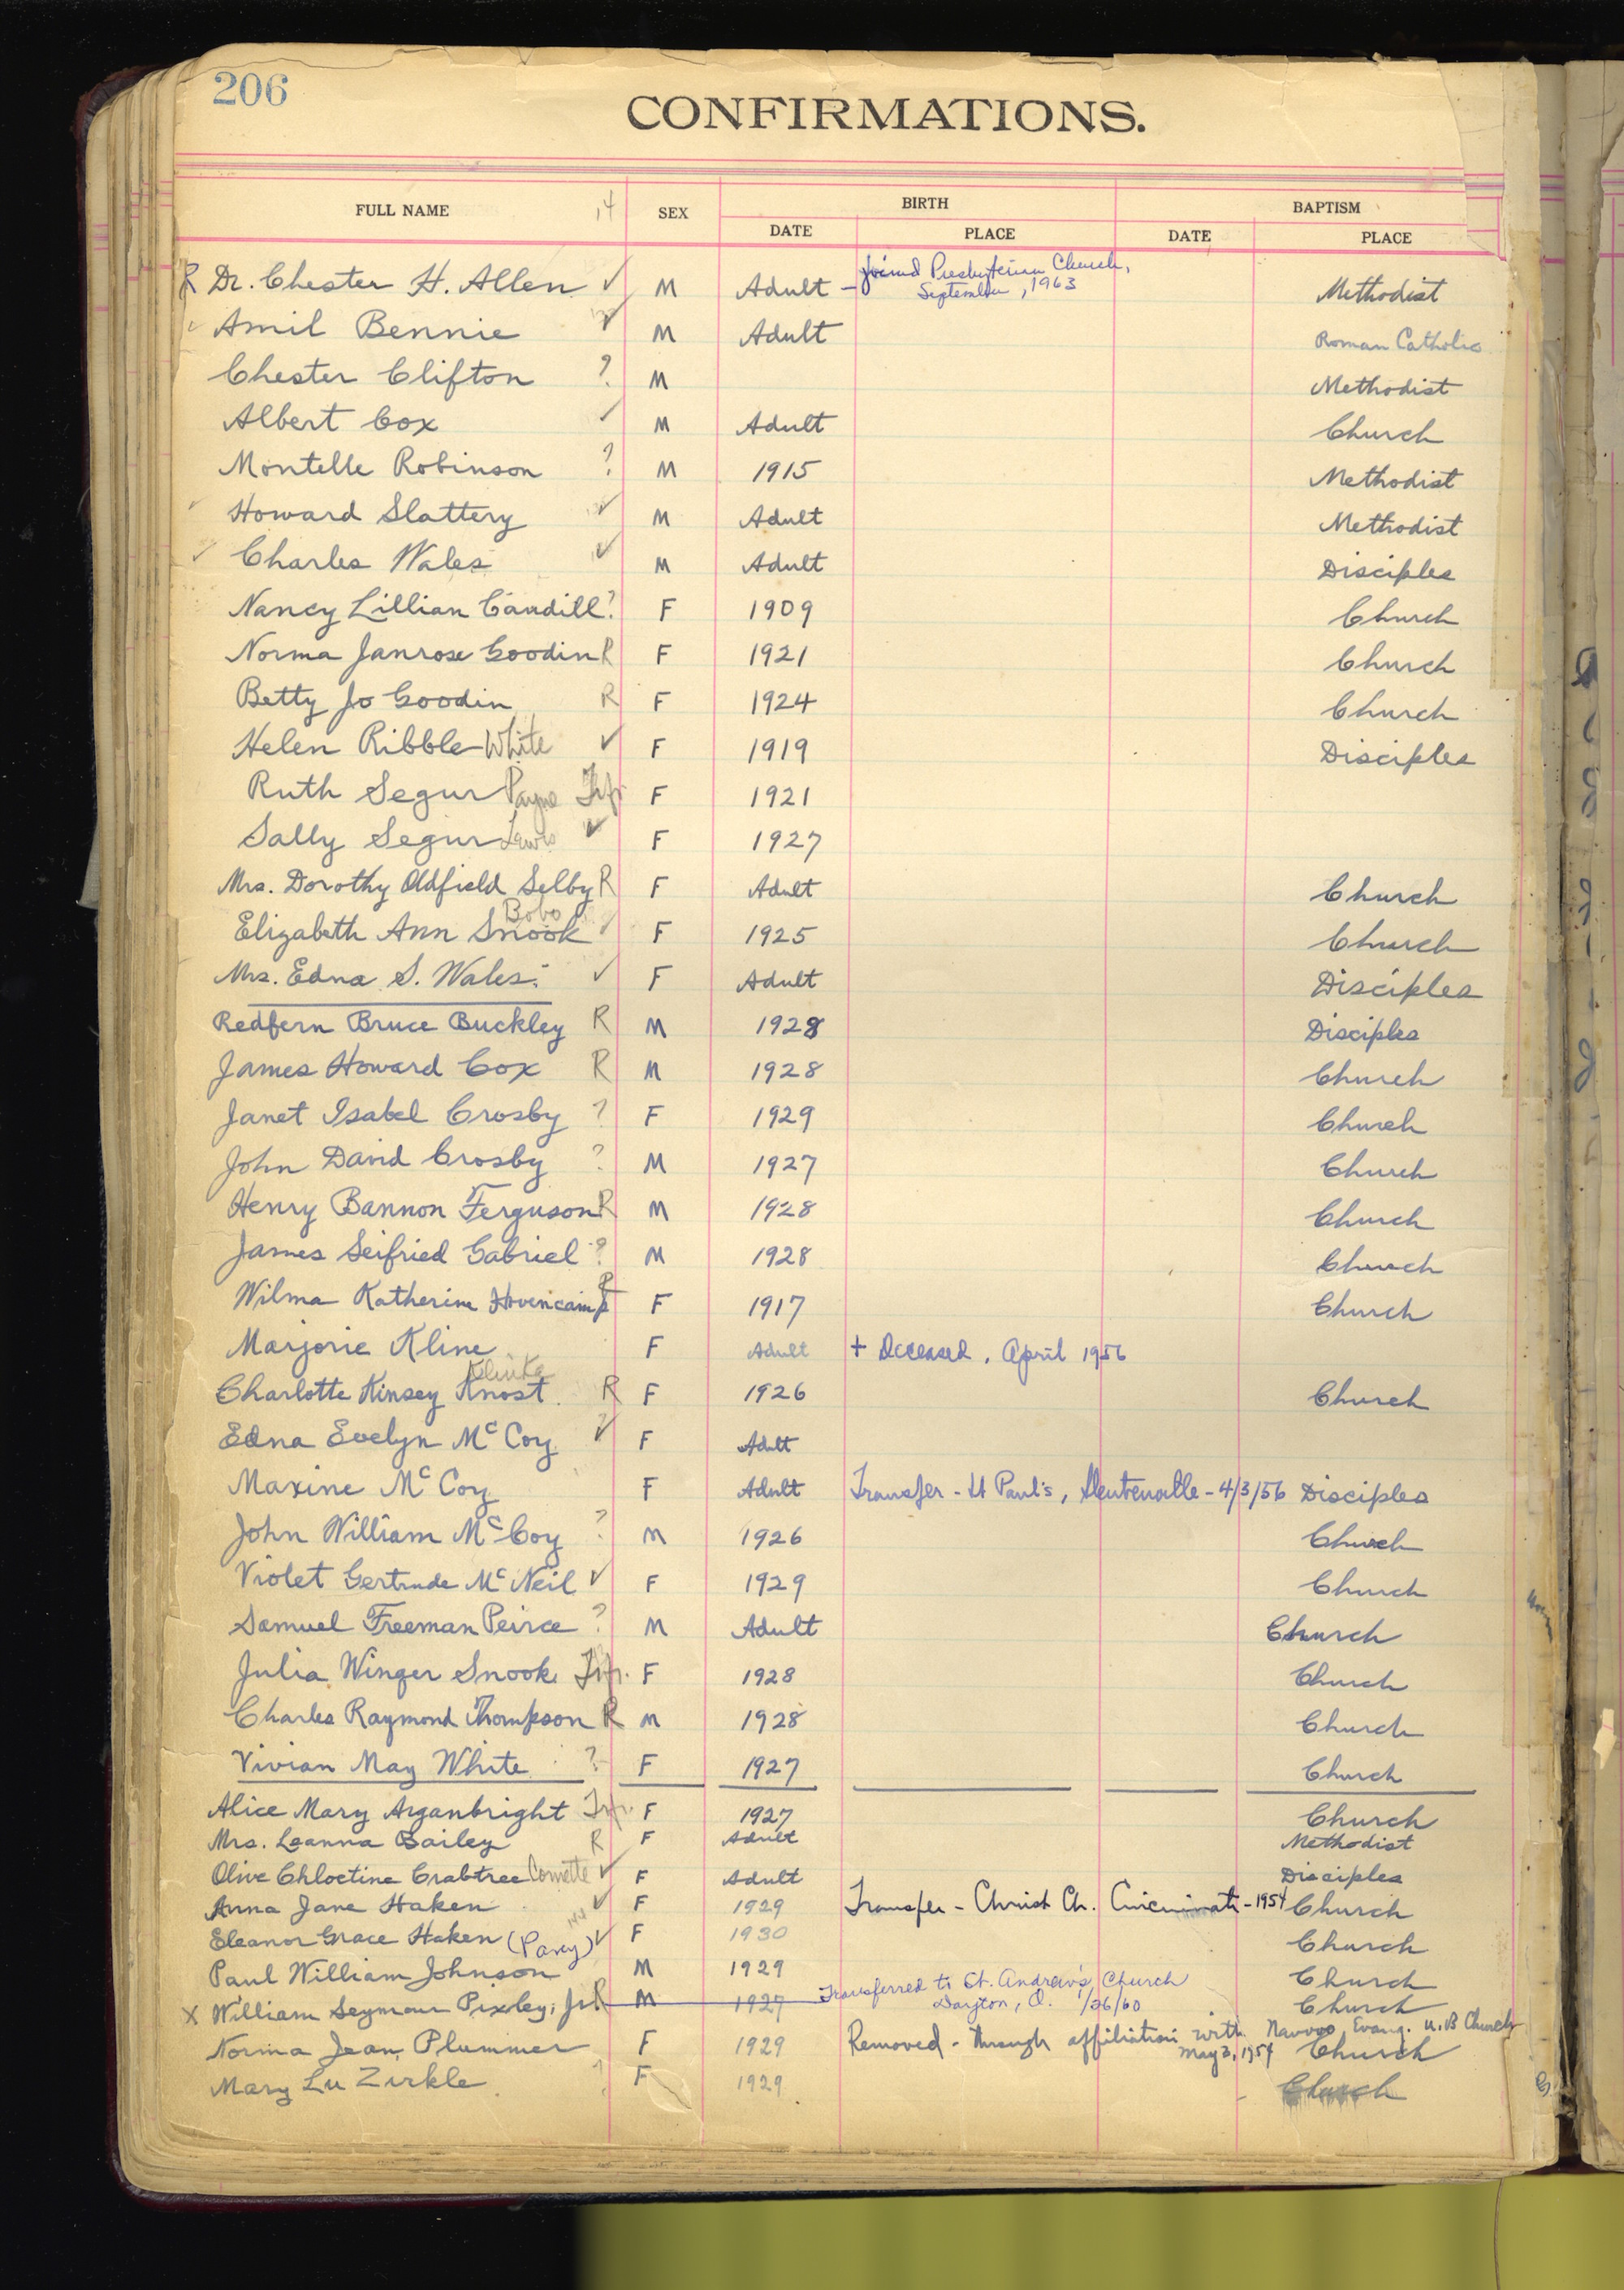 206
CONFIRMATIONS.
FULL NAME SEX BIRTH BAPTISM
DATE PLACE DATE PLACE
R Dr. Chester H. Allen ✓ M Adult – Joined Presbyterian Church, September, 1963 Methodist
Amil Bennie ✓ M Adult Roman Catholic
Chester Clifton ? M Methodist
Albert Cox ✓ M Adult Church
Montelle Robinson ? M 1915 Methodist
✓ Howard Slattery ✓ M Adult Methodist
✓ Charles Wales ✓ M Adult Disciples
Nancy Lillian Caudill ? F 1909 Church
Norma Janrose Goodin R F 1921 Church
Betty Jo Goodin R F 1924 Church
Helen Ribble White ✓ F 1919 Disciples
Ruth Segur Payne Trf F 1921
Sally Segur Lewis ✓ F 1927
Mrs. Dorothy Oldfield Selby R F Adult Church
Bobo
Elizabeth Ann Snook ✓ F 1925 Church
Mrs. Edna S. Wales ✓ F Adult Disciples
Redfern Bruce Buckley R M 1928 Disciples
James Howard Cox R M 1928 Church
Janet Isabel Crosby ? F 1929 Church
John David Crosby ? M 1927 Church
Henry Bannon Ferguson R M 1928 Church
James Seifried Gabriel ? M 1928 Church
Wilma Katherine Hovencamp R F 1917 Church
Marjorie Kline F Adult + Deceased, April 1956
Klinke
Charlotte Kinsey Knost R F 1926 Church
Edna Evelyn McCoy ✓ F Adult
Maxine McCoy F Adult Transfer - St Paul's, - 4/3/56 Disciples
John William McCoy ? M 1926 Church
Violet Gertrude McNeil ✓ F 1929 Church
Samuel Freeman Peirce ? M Adult Church
Julia Winger Snook Trf. F 1928 Church
Charles Raymond Thompson R M 1928 Church
Vivian May White ? F 1927 Church
Alice Mary Arganbright Trf. F 1927 Church
Mrs. Leanna Bailey R F Adult Methodist
Olive Chloctine Crabtree ✓ F Adult Disciples
Anna Jane Haken ✓ F 1929 Transfer - Christ Ch. Cincinnati - 1954 Church
Eleanor Grace Haken (Pavey) ✓ F 1930 Church
Paul William Johnson M 1929 Church
X William Seymour Pixley, Jr. R M 1927 Transferred to St. Andrew's Church Dayton, O. 1/26/60 Church
Norma Jean Plummer F 1929 Removed - through affiliation with Nauvoo Evang. U.B Church May 3, 1954 Church
Mary Lu Zirkle ? F 1929 Church